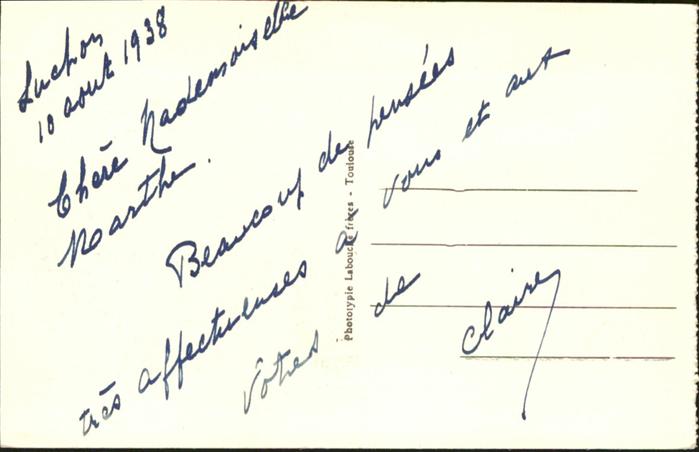 Luchon
10 août 1938
Chère Mademoiselle
Marthe.
Beaucoup de pensées
très affectueuses à vous et aux
vôtres de
Claire
Phototypie Labouche frères - Toulouse